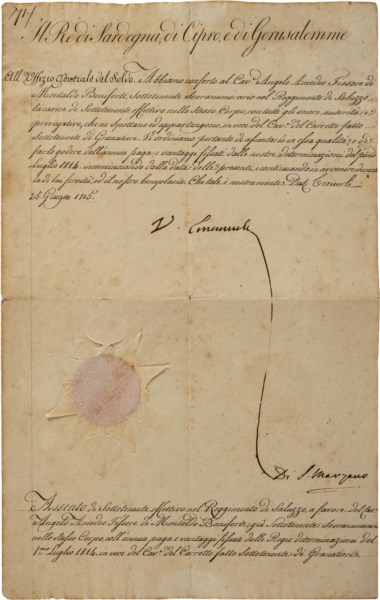 Il Re di Sardegna, di Cipro, e di Gerusalemme
All'Uffizio Generale del Soldo. Abbiamo conferto al Cav.e Angelo Amedeo Fissore di
Montaldo Boniforti, Sottotenente Sovrannumerario nel Reggimento di Saluzzo
la carica di Sottotenente Effettivo nello stesso Corpo, con tutti gli onori, autorità, e
prerogative, che vi spettano ed appartengono, in vece del Cav.e Del Carretto fatto
Sottotenente di Granatieri. Vi ordiniamo pertanto di assentarlo in essa qualità, e di
farlo godere dell'annua paga, e vantaggi fissati dalla nostra determinazione del primo
Luglio 1814. incominciando dalla data della presente, e continuando in avvenire durante
la di lui servitù, ed il nostro beneplacito. Che tale è nostra mente. Dat.
25 Giugno 1815.
V. Emanuele
Di S. Marzano
Assento di Sottotenente Effettivo nel Reggimento di Saluzzo a favore del Cav.e
Angelo Amedeo Fissore di Montaldo Boniforti, già Sottotenente Sovrannumerario
nello stesso Corpo, coll'annua paga, e vantaggi fissati dalle Regie determinazioni del
1.mo Luglio 1814. in vece del Cav.e Del Carretto fatto Sottotenente di Granatieri.